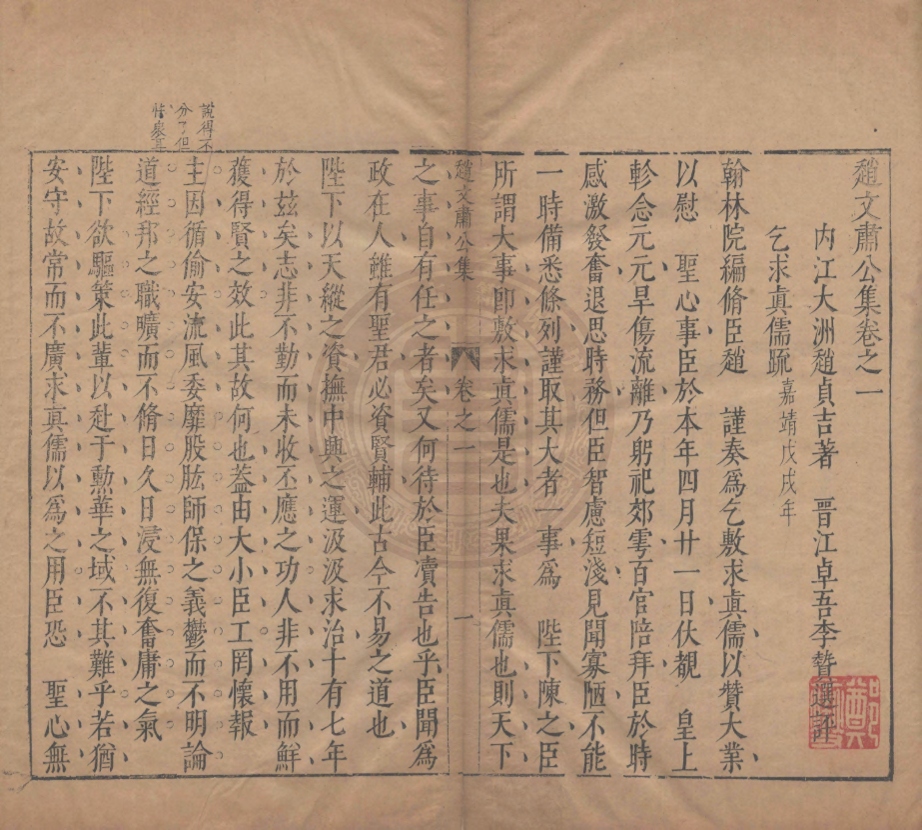 趙文肅公集卷之一
內江大洲趙貞吉著　晋江卓吾李贄選評
乞求眞儒疏 嘉靖戊戌年
翰林院編脩臣趙　謹奏爲乞敷求眞儒以贊大業
以慰　聖心事臣於本年四月廿一日伏覩　皇上
軫念元元旱傷流離乃躬祀郊雩百官陪拜臣於時
感激發奮退思時務但臣智慮短淺見聞寡陋不能
一時備悉條列謹取其大者一事爲　陛下陳之臣
所謂大事卽敷求眞儒是也夫果求眞儒也則天下
趙文肅公集　卷之一　一
之事自有任之者矣又何待於臣瀆告也乎臣聞爲
政在人雖有聖君必資賢輔此古今不易之道也
陛下以天縱之資撫中興之運汲汲求治十有七年
於玆矣志非不勤而未收丕應之功人非不用而鮮
獲得賢之效此其故何也葢由大小臣工罔懷報
主因循偷安流風委靡股肱師保之義鬱而不明論
道經邦之職曠而不脩日久日浸無復奮庸之氣
陛下欲驅策此輩以赴于勳華之域不其難乎若猶
安守故常而不廣求眞儒以爲之用臣恐　聖心無
說得不
分了但